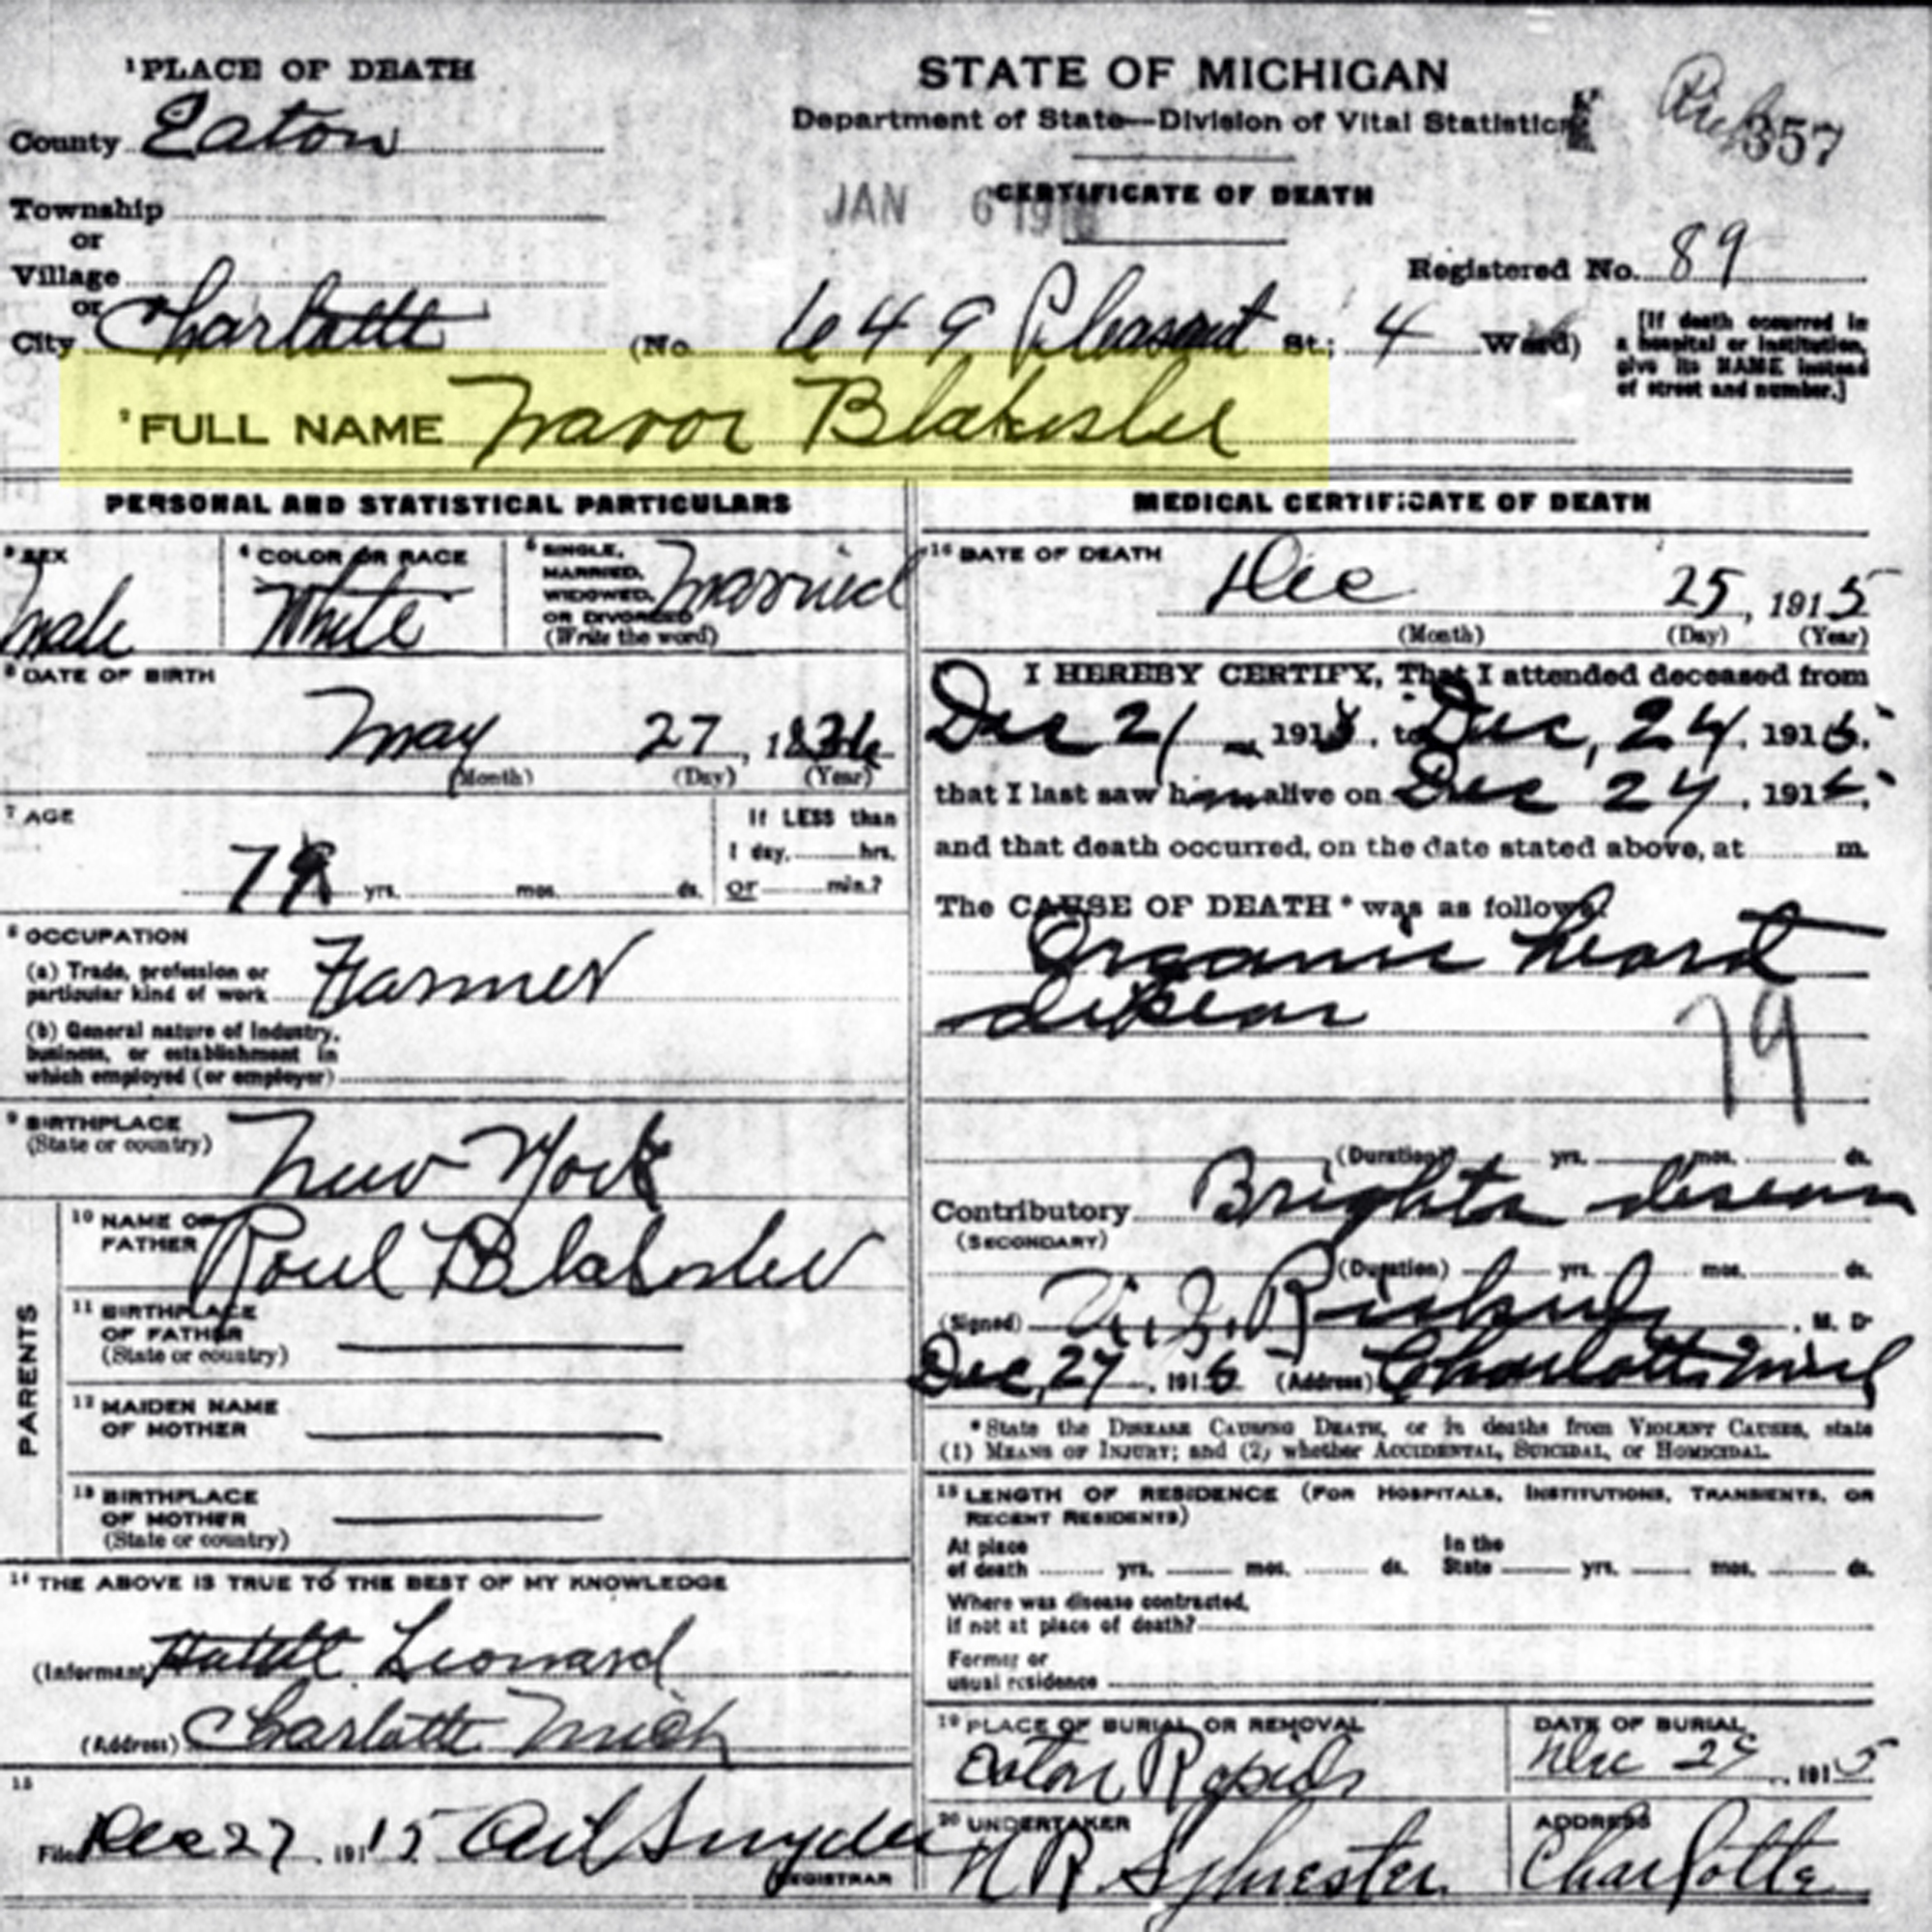 ¹PLACE OF DEATH
County Eaton
Township
or
Village
or
City Charlotte
STATE OF MICHIGAN
Department of State—Division of Vital Statistics
357
CERTIFICATE OF DEATH
JAN 6 19
Registered No. 89
(No. 649 Pleasant St.; 4 Ward)
[If death occurred in
a hospital or institution,
give its NAME instead
of street and number.]
² FULL NAME Blakeslee
PERSONAL AND STATISTICAL PARTICULARS
³ SEX
Male
⁴ COLOR OR RACE
White
⁵ SINGLE,
MARRIED,
WIDOWED,
OR DIVORCED
(Write the word)
Married
⁶ DATE OF BIRTH
May 27, 18
(Month) (Day) (Year)
⁷ AGE
yrs. mos. ds.
If LESS than
1 day, hrs.
or min.?
⁸ OCCUPATION
(a) Trade, profession or
particular kind of work Farmer
(b) General nature of industry,
business, or establishment in
which employed (or employer)
⁹ BIRTHPLACE
(State or country)
New York
PARENTS
¹⁰ NAME OF
FATHER
Blakeslee
¹¹ BIRTHPLACE
OF FATHER
(State or country)
¹² MAIDEN NAME
OF MOTHER
¹³ BIRTHPLACE
OF MOTHER
(State or country)
¹⁴ THE ABOVE IS TRUE TO THE BEST OF MY KNOWLEDGE
(Informant) Leonard
(Address) Charlotte Mich
¹⁵
Filed Dec 27, 1915 Snyder
REGISTRAR
MEDICAL CERTIFICATE OF DEATH
¹⁶ DATE OF DEATH
Dec 25, 1915
(Month) (Day) (Year)
I HEREBY CERTIFY, That I attended deceased from
Dec 21, 191 , to Dec, 24, 1915,
that I last saw him alive on Dec 24, 191 ,
and that death occurred, on the date stated above, at m.
The CAUSE OF DEATH * was as follows:
Organic heart
disease
79
(Duration) yrs. mos. ds.
Contributory Brights disease
(SECONDARY)
(Duration) yrs. mos. ds.
(Signed) , M. D.
Dec, 27, 191 (Address) Charlotte Mich
* State the DISEASE CAUSING DEATH, or in deaths from VIOLENT CAUSES, state
(1) MEANS OF INJURY; and (2) whether ACCIDENTAL, SUICIDAL, or HOMICIDAL.
¹⁸ LENGTH OF RESIDENCE (FOR HOSPITALS, INSTITUTIONS, TRANSIENTS, OR
RECENT RESIDENTS)
At place
of death yrs. mos. ds.
In the
State yrs. mos. ds.
Where was disease contracted,
if not at place of death?
Former or
usual residence
¹⁹ PLACE OF BURIAL OR REMOVAL
Eaton Rapids
DATE OF BURIAL
Dec , 1915
²⁰ UNDERTAKER
N R Sylvester
ADDRESS
Charlotte